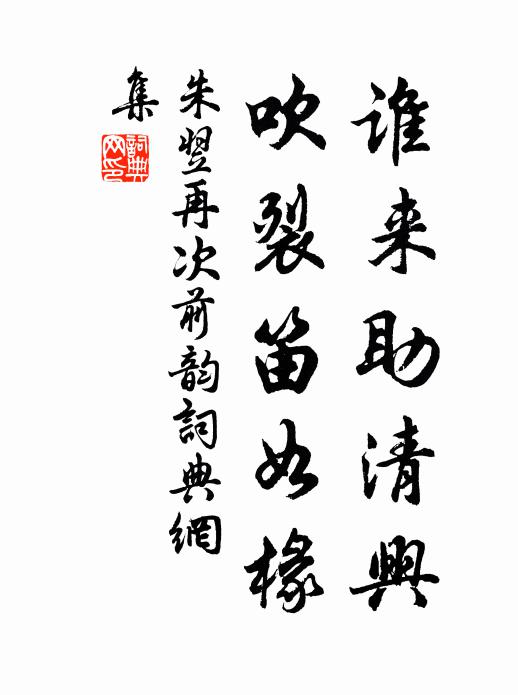 谁来助清興
吹裂笛如椽
朱翌再次前韵詞典網
集
詞典网印